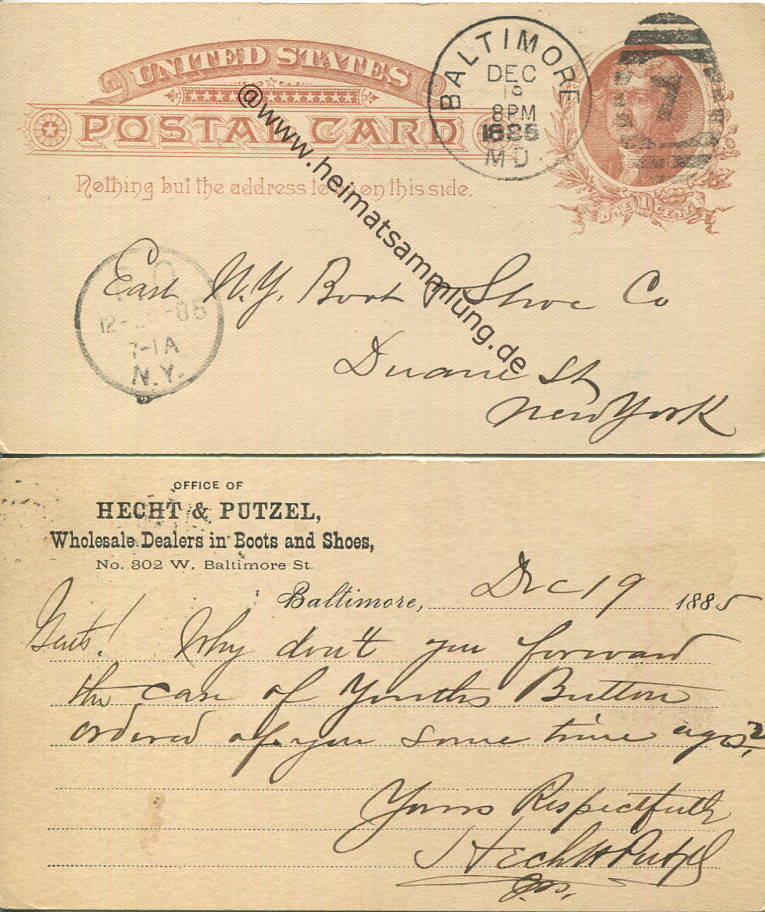 UNITED STATES
POSTAL CARD
Nothing but the address to be on this side.
BALTIMORE
DEC
19
8PM
1885
MD.
1
ONE 1 CENT
@www.heimatsammlung.de
12- -85
7-1A
N.Y.
East N.Y. Boot & Shoe Co
Duane St
New York
OFFICE OF
HECHT & PUTZEL,
Wholesale Dealers in Boots and Shoes,
No. 302 W. Baltimore St.
Baltimore, Dec 19 1885
Gents! Why don't you forward
the case of Youths Button
ordered of you some time ago?
Yours Respectfully
Hecht & Putzel